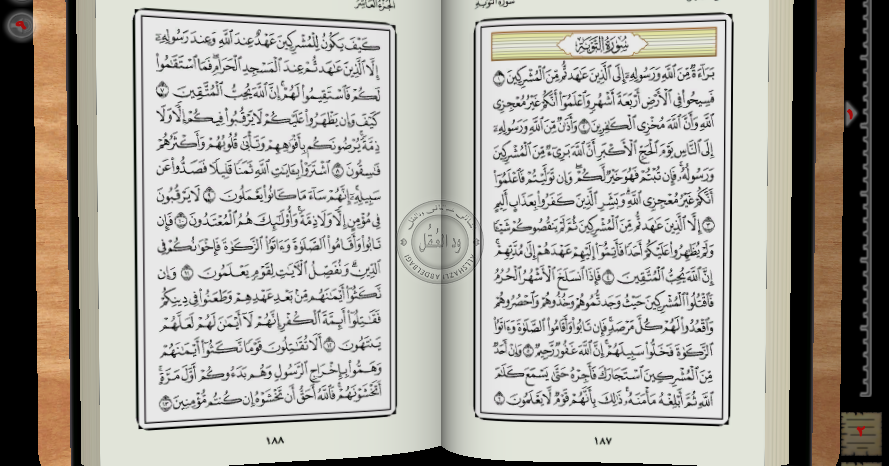 سُورَةُ التَّوْبَةِ
بَرَآءَةٌ مِّنَ ٱللَّهِ وَرَسُولِهِۦٓ إِلَى ٱلَّذِينَ عَٰهَدتُّم مِّنَ ٱلْمُشْرِكِينَ ١
فَسِيحُوا۟ فِى ٱلْأَرْضِ أَرْبَعَةَ أَشْهُرٍ وَٱعْلَمُوٓا۟ أَنَّكُمْ غَيْرُ مُعْجِزِى
ٱللَّهِ وَأَنَّ ٱللَّهَ مُخْزِى ٱلْكَٰفِرِينَ ٢ وَأَذَٰنٌ مِّنَ ٱللَّهِ وَرَسُولِهِۦٓ
إِلَى ٱلنَّاسِ يَوْمَ ٱلْحَجِّ ٱلْأَكْبَرِ أَنَّ ٱللَّهَ بَرِىٓءٌ مِّنَ ٱلْمُشْرِكِينَ
وَرَسُولُهُۥ فَإِن تُبْتُمْ فَهُوَ خَيْرٌ لَّكُمْ وَإِن تَوَلَّيْتُمْ فَٱعْلَمُوٓا۟
أَنَّكُمْ غَيْرُ مُعْجِزِى ٱللَّهِ وَبَشِّرِ ٱلَّذِينَ كَفَرُوا۟ بِعَذَابٍ أَلِيمٍ
٣ إِلَّا ٱلَّذِينَ عَٰهَدتُّم مِّنَ ٱلْمُشْرِكِينَ ثُمَّ لَمْ يَنقُصُوكُمْ شَيْـًٔا
وَلَمْ يُظَٰهِرُوا۟ عَلَيْكُمْ أَحَدًا فَأَتِمُّوٓا۟ إِلَيْهِمْ عَهْدَهُمْ إِلَىٰ مُدَّتِهِمْ
إِنَّ ٱللَّهَ يُحِبُّ ٱلْمُتَّقِينَ ٤ فَإِذَا ٱنسَلَخَ ٱلْأَشْهُرُ ٱلْحُرُمُ
فَٱقْتُلُوا۟ ٱلْمُشْرِكِينَ حَيْثُ وَجَدتُّمُوهُمْ وَخُذُوهُمْ وَٱحْصُرُوهُمْ
وَٱقْعُدُوا۟ لَهُمْ كُلَّ مَرْصَدٍ فَإِن تَابُوا۟ وَأَقَامُوا۟ ٱلصَّلَوٰةَ وَءَاتَوُا۟
ٱلزَّكَوٰةَ فَخَلُّوا۟ سَبِيلَهُمْ إِنَّ ٱللَّهَ غَفُورٌ رَّحِيمٌ ٥ وَإِنْ أَحَدٌ
مِّنَ ٱلْمُشْرِكِينَ ٱسْتَجَارَكَ فَأَجِرْهُ حَتَّىٰ يَسْمَعَ كَلَٰمَ
ٱللَّهِ ثُمَّ أَبْلِغْهُ مَأْمَنَهُۥ ذَٰلِكَ بِأَنَّهُمْ قَوْمٌ لَّا يَعْلَمُونَ ٦
١٨٧
كَيْفَ يَكُونُ لِلْمُشْرِكِينَ عَهْدٌ عِندَ ٱللَّهِ وَعِندَ رَسُولِهِۦٓ
إِلَّا ٱلَّذِينَ عَٰهَدتُّمْ عِندَ ٱلْمَسْجِدِ ٱلْحَرَامِ فَمَا ٱسْتَقَٰمُوا۟
لَكُمْ فَٱسْتَقِيمُوا۟ لَهُمْ إِنَّ ٱللَّهَ يُحِبُّ ٱلْمُتَّقِينَ ٧
كَيْفَ وَإِن يَظْهَرُوا۟ عَلَيْكُمْ لَا يَرْقُبُوا۟ فِيكُمْ إِلًّا وَلَا
ذِمَّةً يُرْضُونَكُم بِأَفْوَٰهِهِمْ وَتَأْبَىٰ قُلُوبُهُمْ وَأَكْثَرُهُمْ
فَٰسِقُونَ ٨ ٱشْتَرَوْا۟ بِـَٔايَٰتِ ٱللَّهِ ثَمَنًا قَلِيلًا فَصَدُّوا۟ عَن
سَبِيلِهِۦٓ إِنَّهُمْ سَآءَ مَا كَانُوا۟ يَعْمَلُونَ ٩ لَا يَرْقُبُونَ
فِى مُؤْمِنٍ إِلًّا وَلَا ذِمَّةً وَأُو۟لَٰٓئِكَ هُمُ ٱلْمُعْتَدُونَ ١٠ فَإِن
تَابُوا۟ وَأَقَامُوا۟ ٱلصَّلَوٰةَ وَءَاتَوُا۟ ٱلزَّكَوٰةَ فَإِخْوَٰنُكُمْ فِى
ٱلدِّينِ وَنُفَصِّلُ ٱلْـَٔايَٰتِ لِقَوْمٍ يَعْلَمُونَ ١١ وَإِن
نَّكَثُوٓا۟ أَيْمَٰنَهُم مِّنۢ بَعْدِ عَهْدِهِمْ وَطَعَنُوا۟ فِى دِينِكُمْ
فَقَٰتِلُوٓا۟ أَئِمَّةَ ٱلْكُفْرِ إِنَّهُمْ لَآ أَيْمَٰنَ لَهُمْ لَعَلَّهُمْ
يَنتَهُونَ ١٢ أَلَا تُقَٰتِلُونَ قَوْمًا نَّكَثُوٓا۟ أَيْمَٰنَهُمْ
وَهَمُّوا۟ بِإِخْرَاجِ ٱلرَّسُولِ وَهُم بَدَءُوكُمْ أَوَّلَ مَرَّةٍ
أَتَخْشَوْنَهُمْ فَٱللَّهُ أَحَقُّ أَن تَخْشَوْهُ إِن كُنتُم مُّؤْمِنِينَ ١٣
١٨٨
ود العُقَل